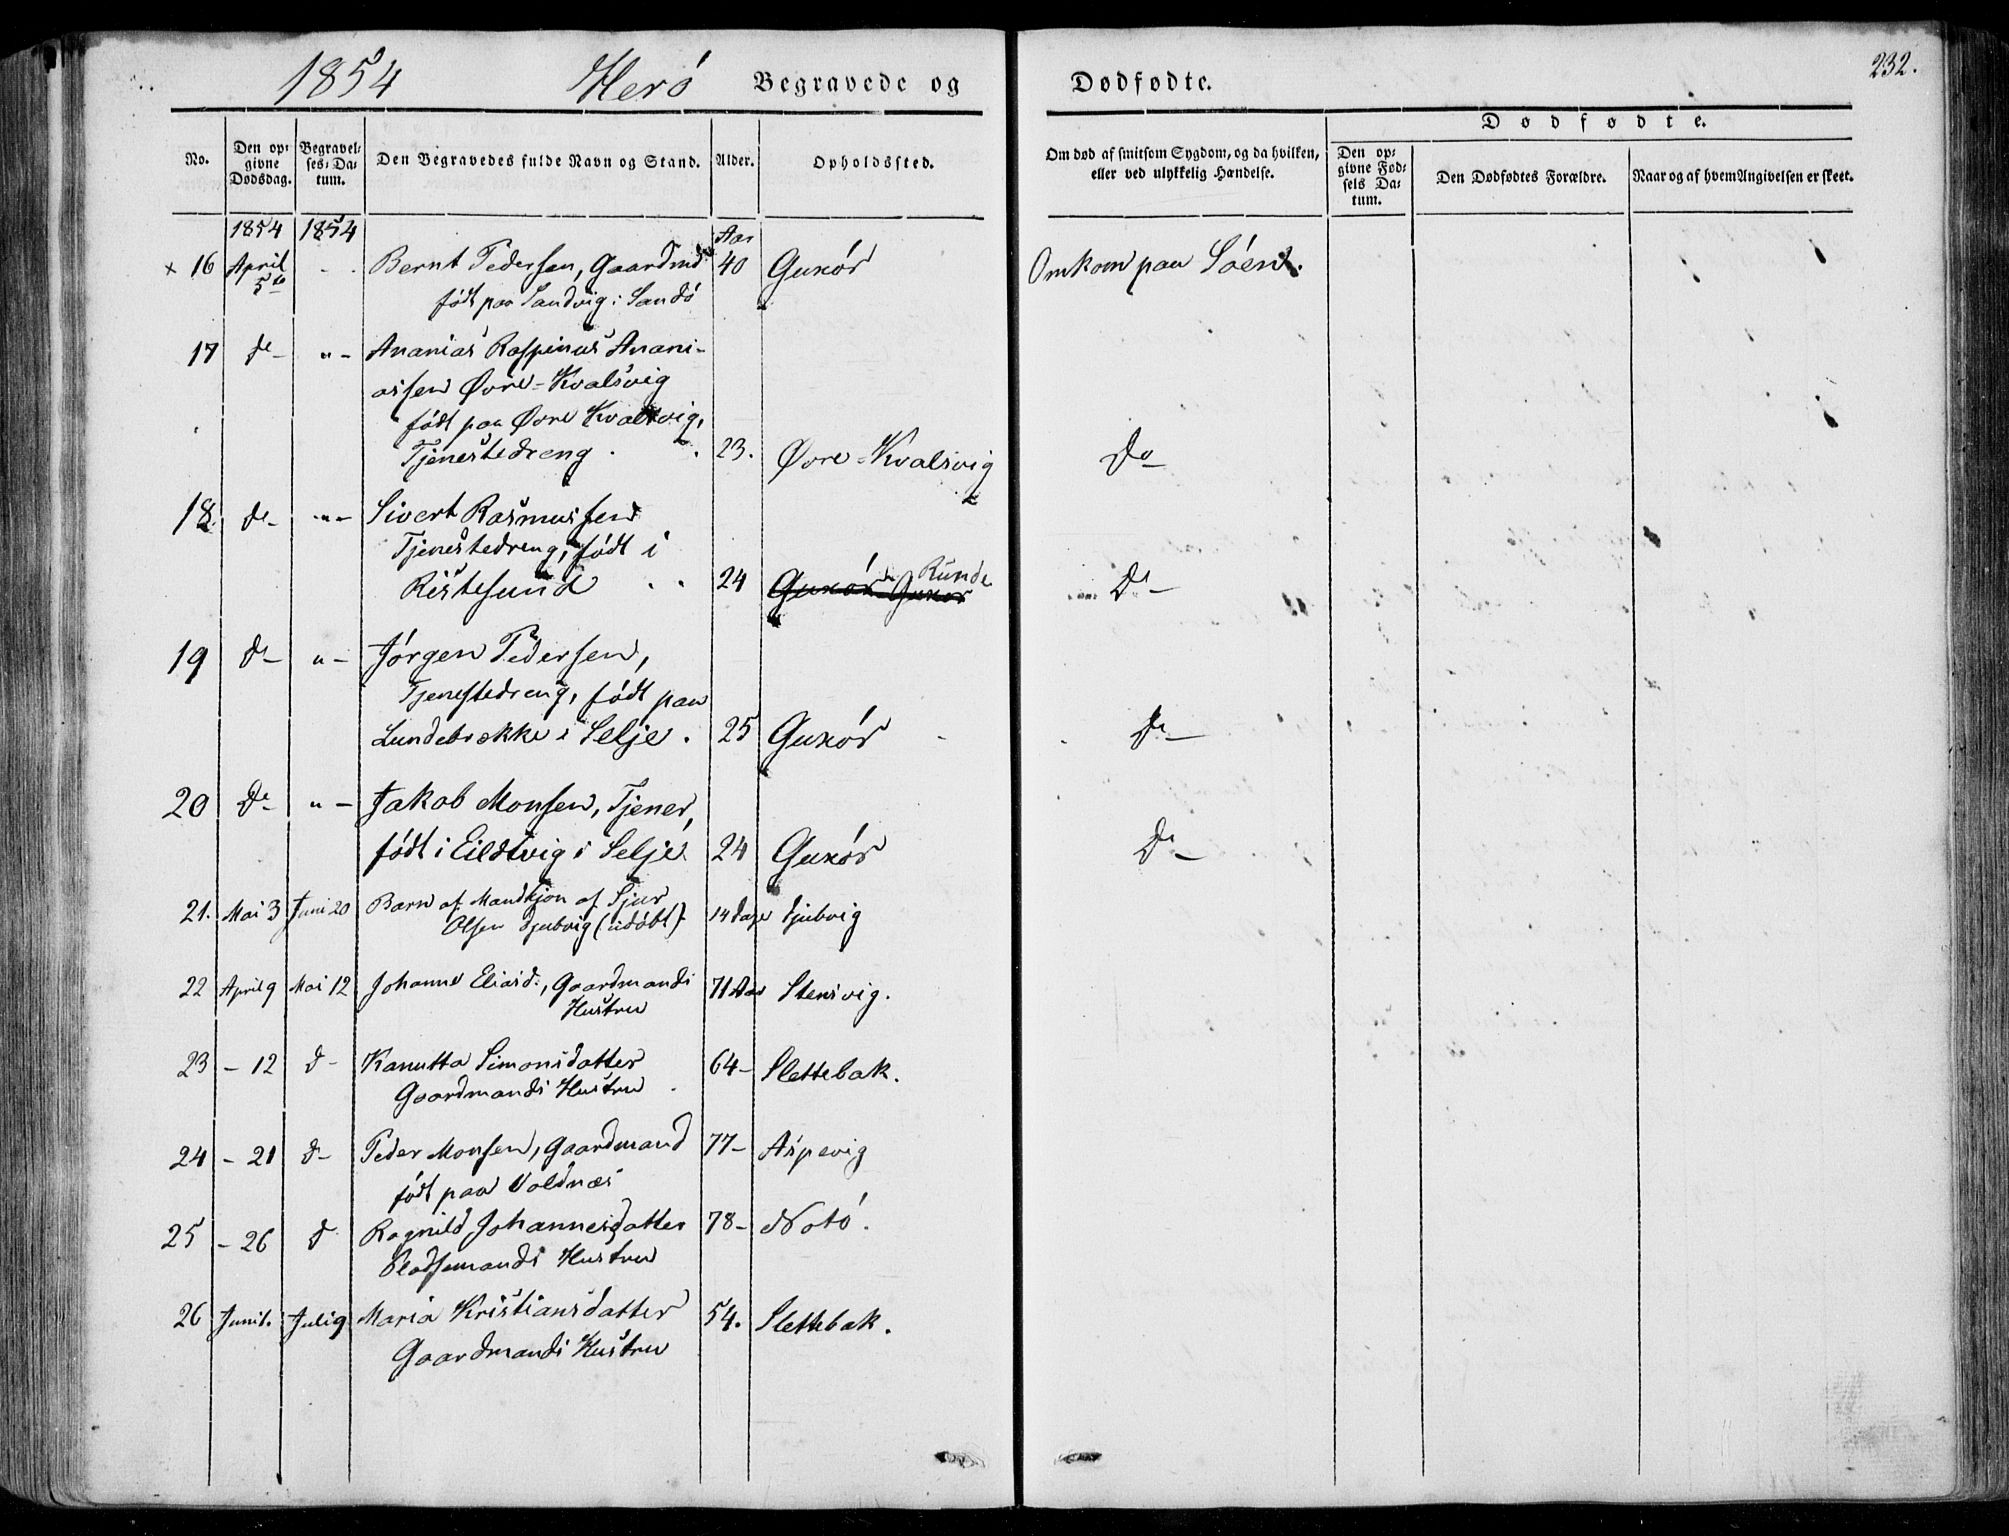 1854 Herö Begravede og Dødfødte. 232.
Dødfødte.
No.
Den opgivne Dødsdag.
Begravelses-Datum.
Den Begravedes fulde Navn og Stand.
Alder.
Opholdssted.
Om død af smitsom Sygdom, og da hvilken,
eller ved ulykkelig Hændelse.
Den opgivne Fødsels Datum.
Den Dødfødtes Forældre.
Naar og af hvem Angivelsen er skeet.
1854 1854 Aar
x 16 April - - Bernt Pedersen, Gaardmd 40 Guxór Omkom paa Söen.
5te født paa Sandvig i Sandö
17 do - " - Ananias Raspinus Anani-
assen Øvre-Kvalsvig
født paa Øvre Kvalsvig,
Tjenestedreng . . 23. Øvre-Kvalsvig Do -
18 do - " - Sivert Rasmussen
Tjenestedreng, født i
Ristesund . . 24 Guxór Guxor Runde Do -
19 do - " - Jörgen Pedersen,
Tjenestedreng, født paa
Lundebrekke i Selje. 25 Guxór Do -
20 Do - " - Jakob Monsen, Tjener,
født i Eildtvig i Selje 24 Guxór Do -
21. Mai 3 Juni 20 Barn af Mandkjøn af Sjur 14 Dage Djubvig
Olsen Djubvig (udöbt)
22 April 9 Mai 12 Johanne Eliasd., Gaardmands 71 Aar Stensvig.
Hustru
23 - 12 d - Kanutta Simonsdatter 64 - Slettebak.
Gaardmands Hustru .
24 - 21 d - Peder Monsen, Gaardmand 77 - Aspevig
født paa Voldnæs
25 - 26 d Ragnild Johannesdatter 78 - Notö.
Pladsemands Hustru
26 Juni 1. Juli 9 Maria Kristiansdatter 54. Slettebak.
Gaardmands Hustru